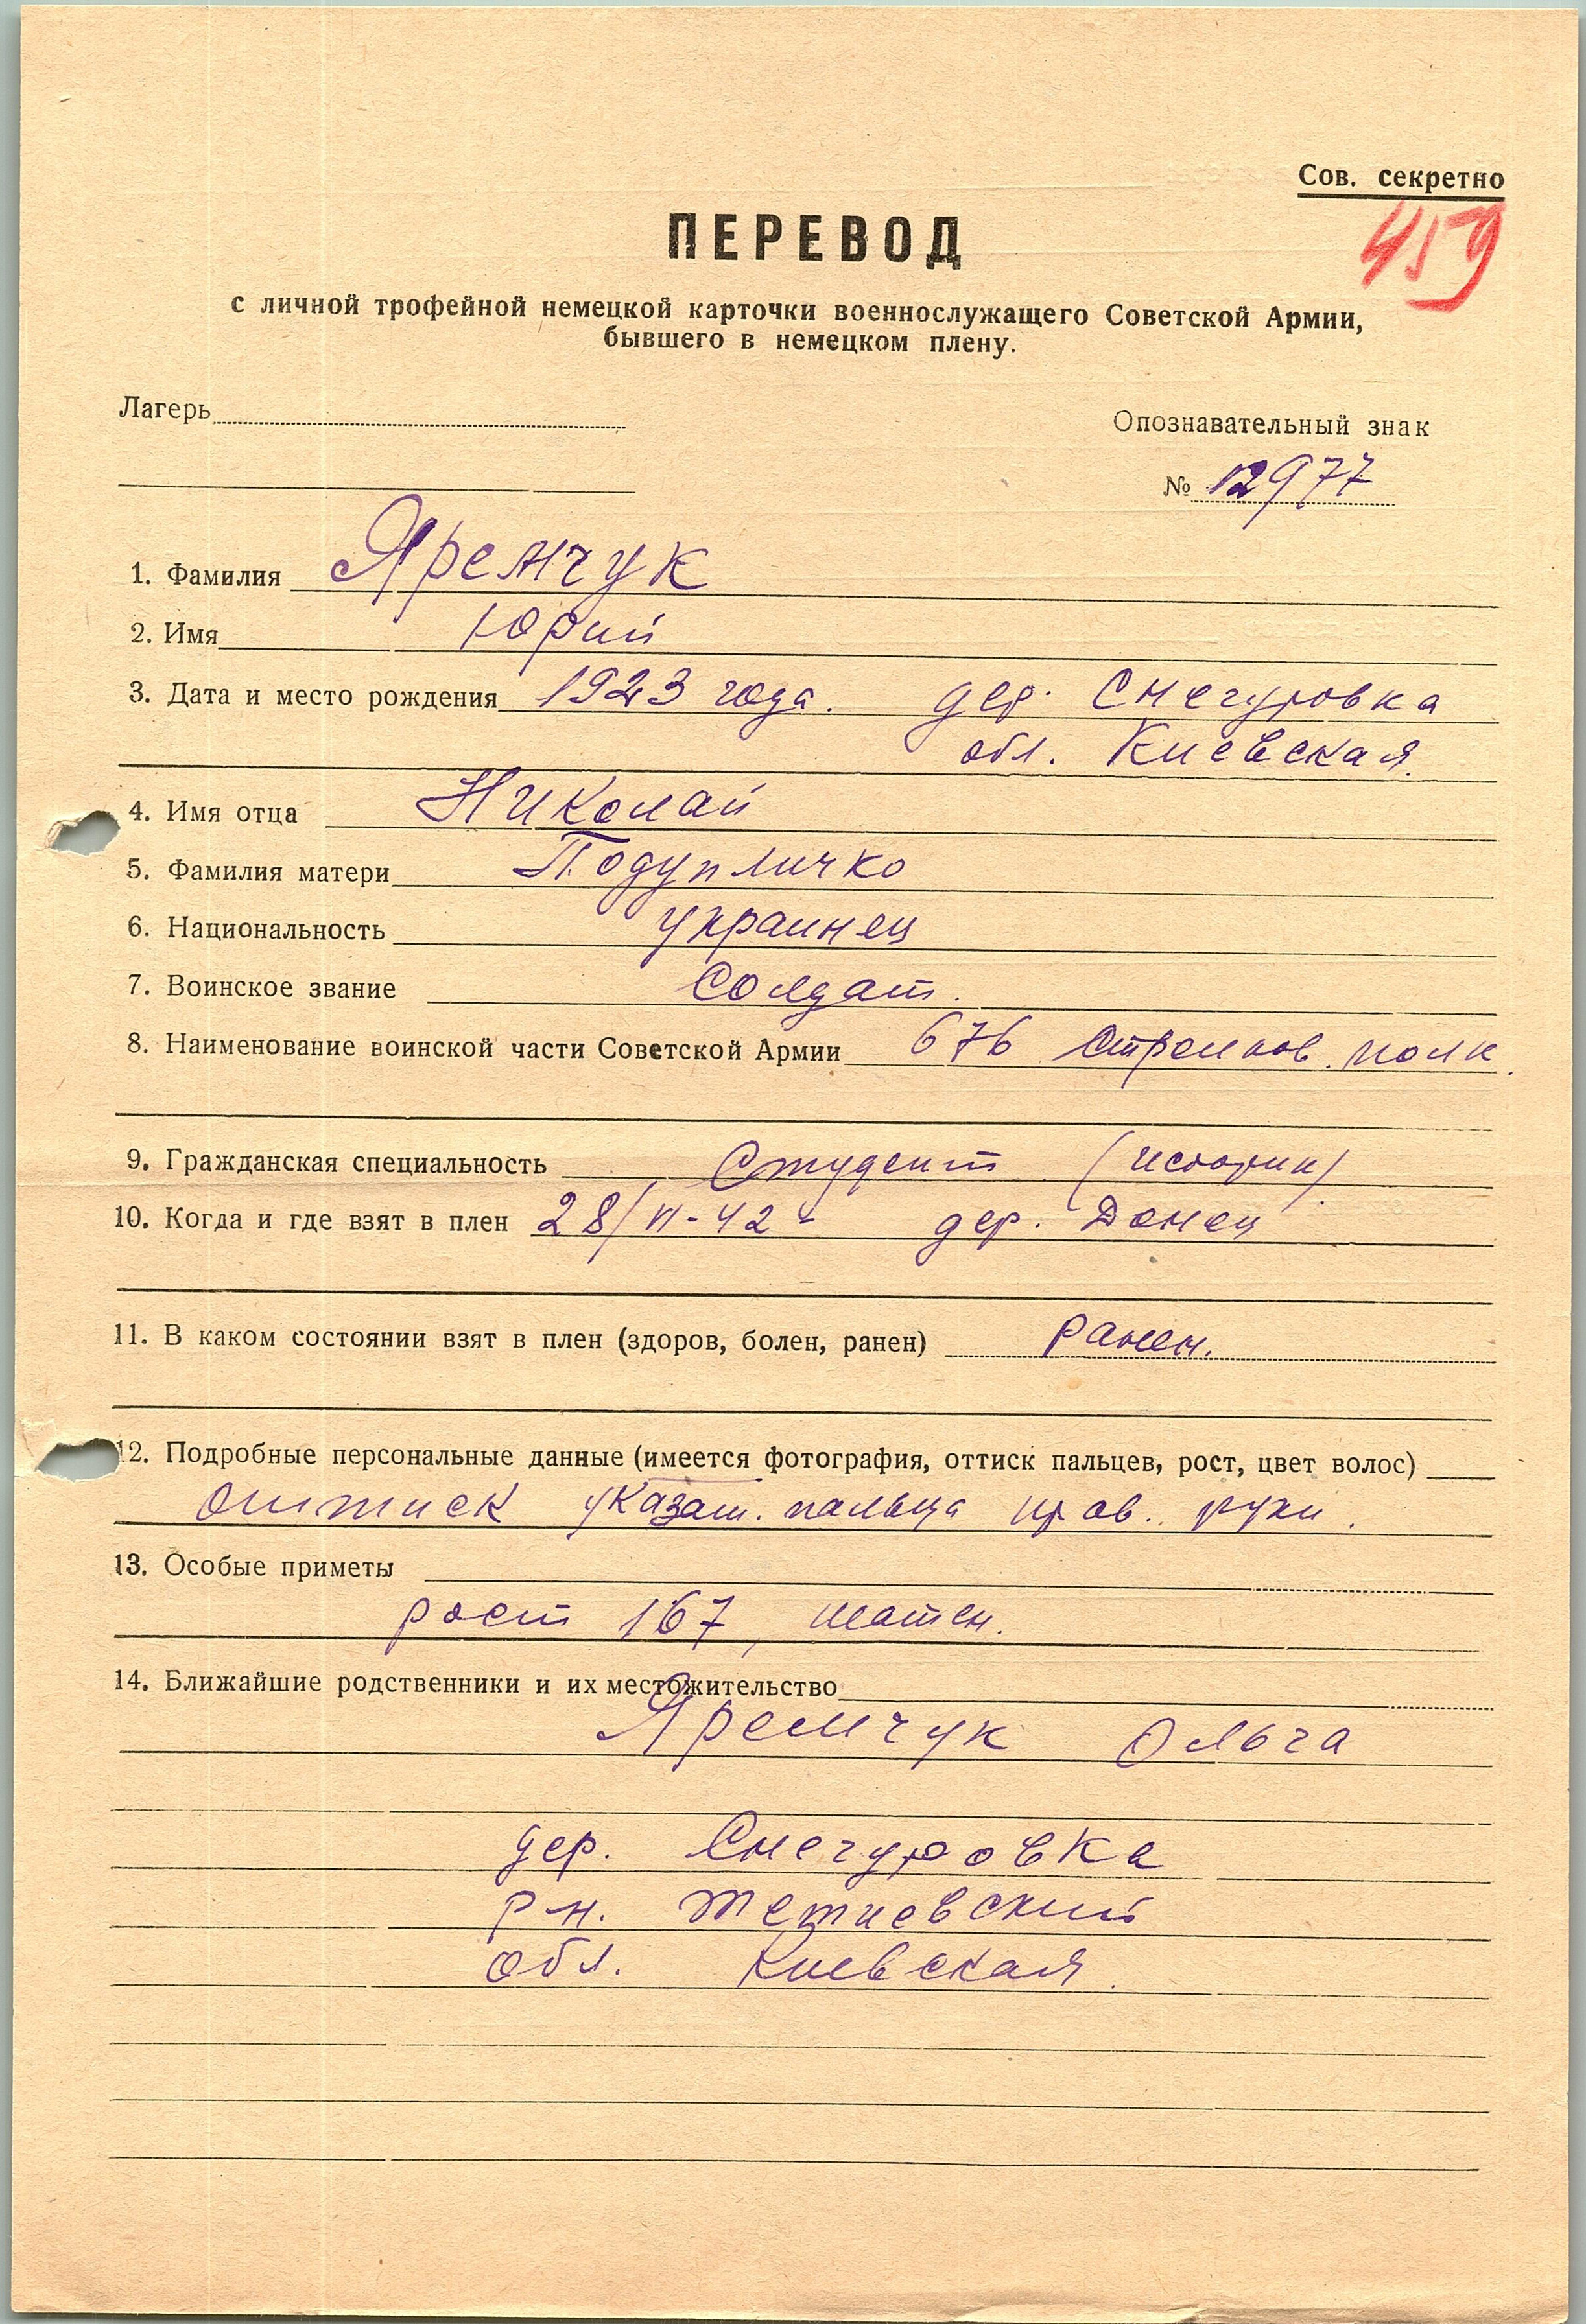 Сов. секретно
459
ПЕРЕВОД
с личной трофейной немецкой карточки военнослужащего Советской Армии,
бывшего в немецком плену.
Лагерь
Опознавательный знак
№ 12977
1. Фамилия Яремчук
2. Имя Юрий
3. Дата и место рождения 1923 года. дер. Снегуровка
обл. Киевская.
4. Имя отца Николай
5. Фамилия матери Подупличко
6. Национальность украинец
7. Воинское звание Солдат.
8. Наименование воинской части Советской Армии 676 Стрелков. полк.
9. Гражданская специальность Студент (историк)
10. Когда и где взят в плен 28/VI-42 г дер. Донец
11. В каком состоянии взят в плен (здоров, болен, ранен) ранен.
12. Подробные персональные данные (имеется фотография, оттиск пальцев, рост, цвет волос)
Оттиск указат. пальца прав. руки.
13. Особые приметы
рост 167, шатен.
14. Ближайшие родственники и их местожительство
Яремчук Ольга
дер. Снегуровка
р-н. Тетиевский
обл. Киевская.